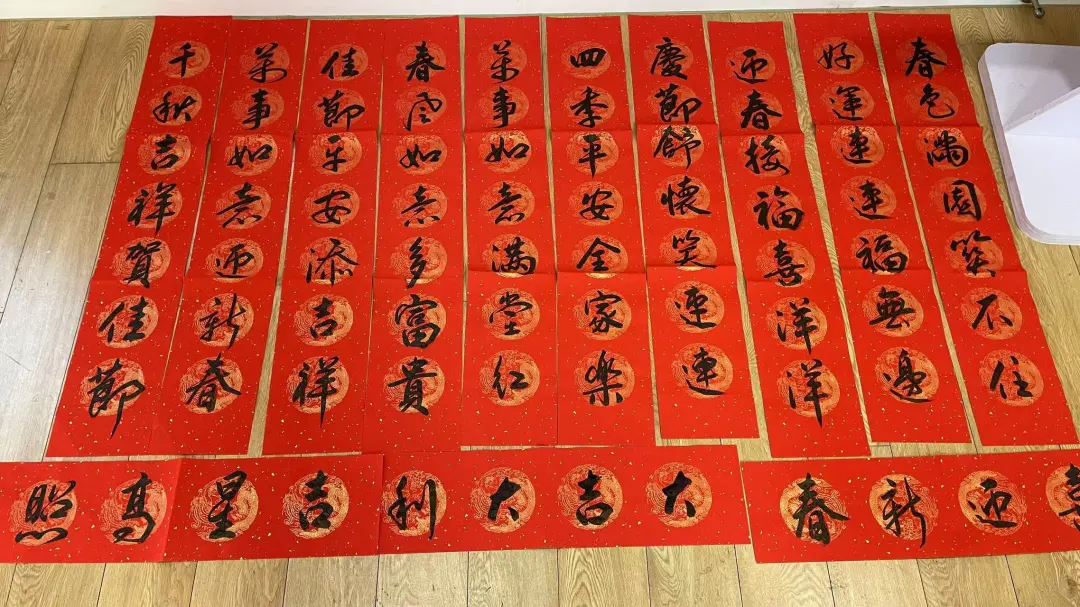 春色滿園笑不住
好運連連福無邊
迎春接福喜洋洋
慶節舒懷笑連連
四季平安全家樂
萬事如意滿堂紅
春風如意多富貴
佳節平安添吉祥
萬事如意迎新春
千秋吉祥賀佳節
喜迎新春
大吉大利
吉星高照